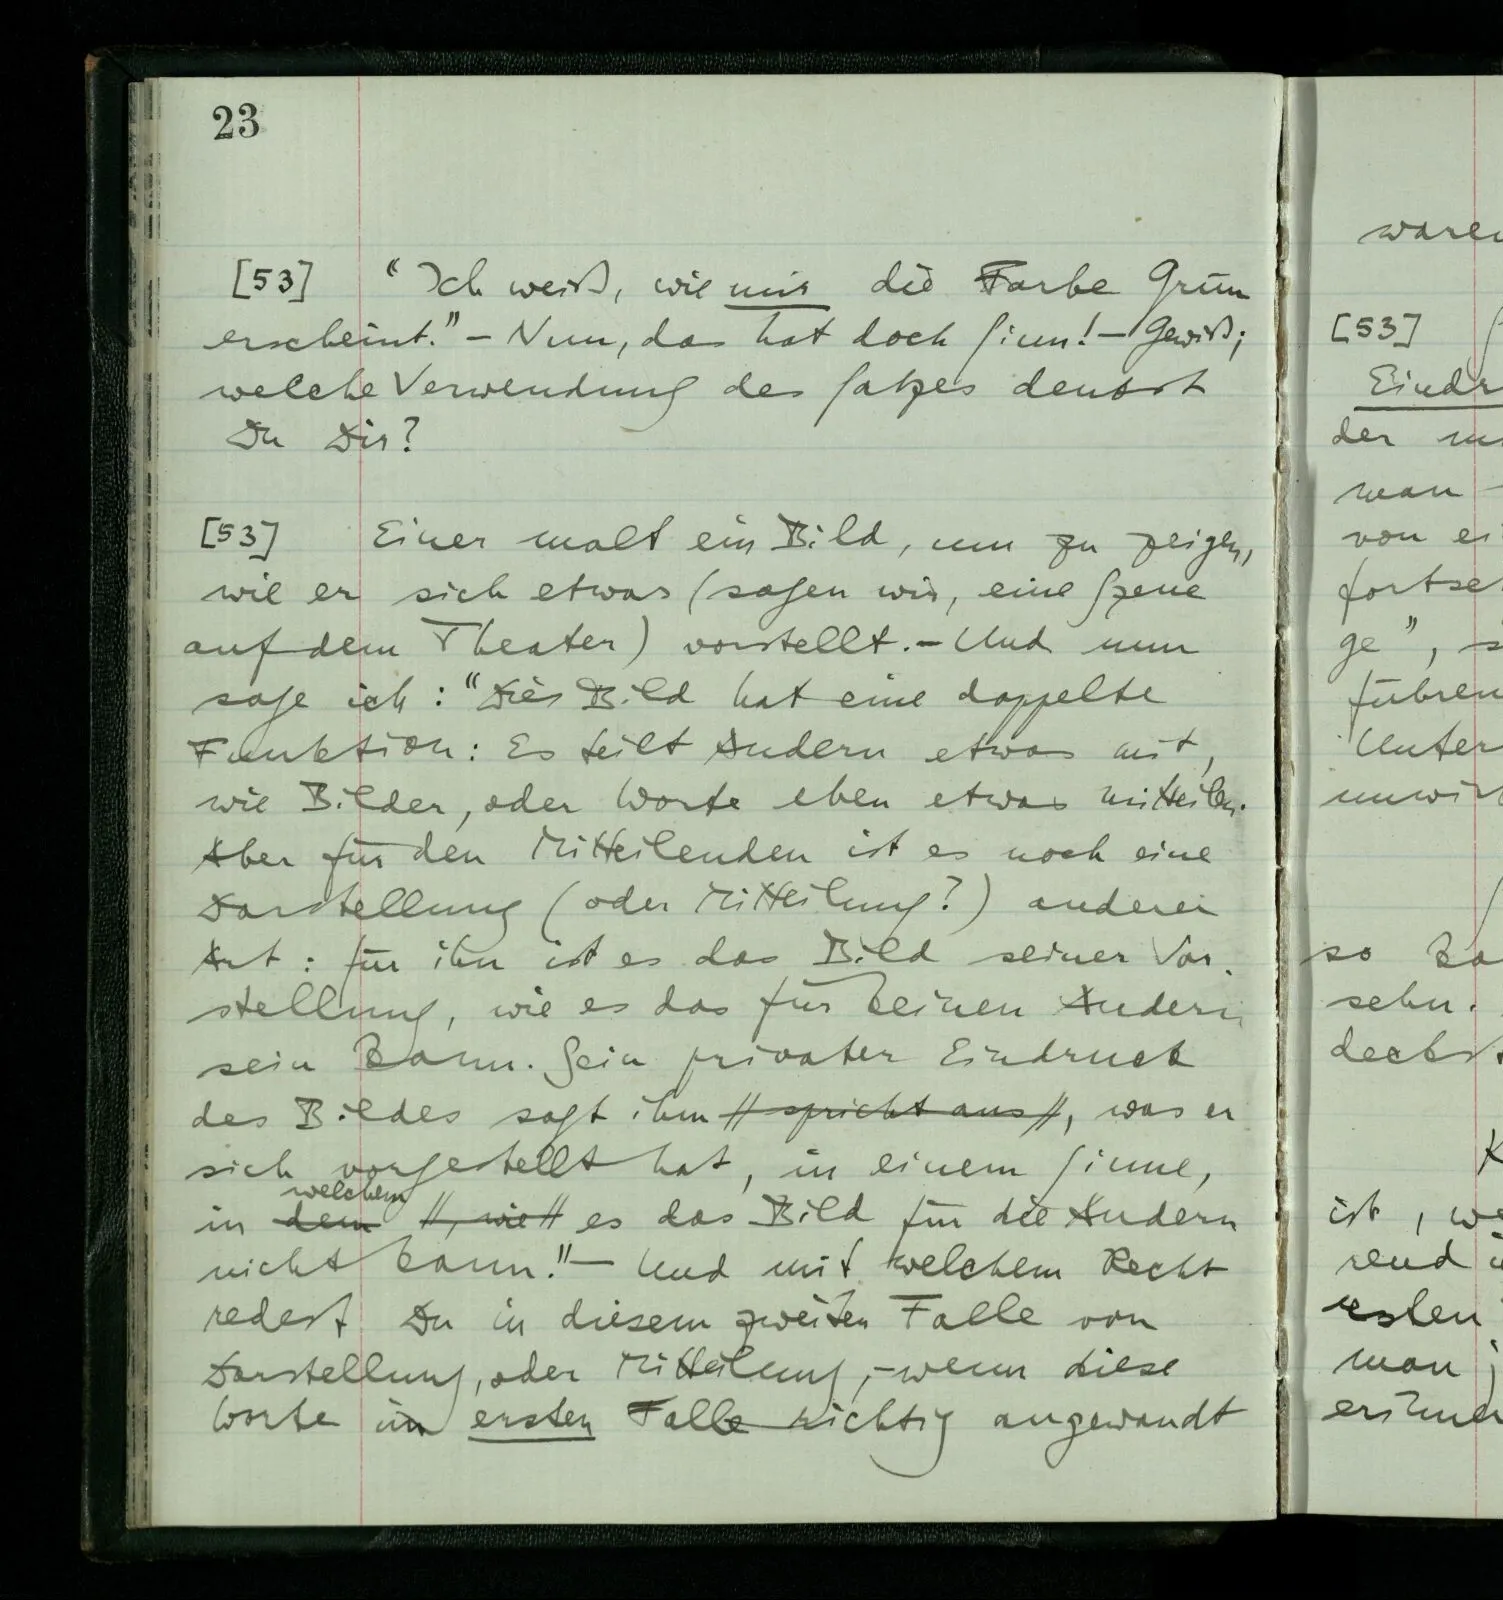 23
[53] "Ich weiß, wie mir die Farbe Grün
erscheint." – Nun, das hat doch Sinn! – Gewiß;
welche Verwendung des Satzes denkst
Du Dir?
[53] Einer malt ein Bild, um zu zeigen,
wie er sich etwas (sagen wir, eine Szene
auf dem Theater) vorstellt. – Und nun
sage ich: "Dies Bild hat eine doppelte
Funktion: Es teilt Andern etwas mit,
wie Bilder, oder Worte eben etwas mitteilen.
Aber für den Mitteilenden ist es noch eine
Darstellung (oder Mitteilung?) anderer
Art: für ihn ist es das Bild seiner Vor-
stellung, wie es das für keinen Andern
sein kann. Sein privater Eindruck
des Bildes sagt ihm // spricht aus //, was er
sich vorgestellt hat, in einem Sinne,
welchem
in dem //, wie // es das Bild für die Andern
nicht kann." – Und mit welchem Recht
redest Du in diesem zweiten Falle von
Darstellung, oder Mitteilung, – wenn diese
Worte im ersten Falle richtig angewandt
waren
[53]
der
man –
von
ge",
so
sehn.
ist,
man